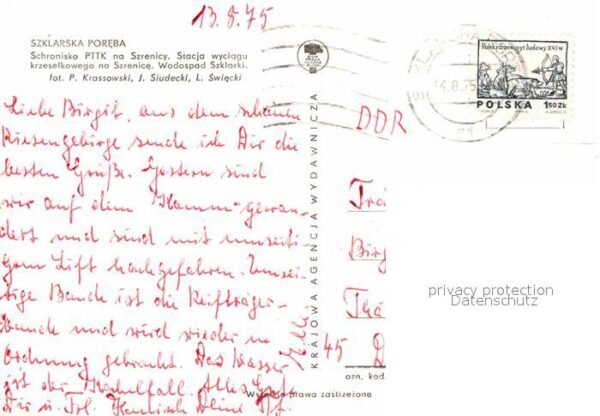 13.8.75
SZKLARSKA PORĘBA
Schronisko PTTK na Szrenicy. Stacja wyciągu
krzesełkowego na Szrenicę. Wodospad Szklarki.
fot. P. Krassowski, J. Siudecki, L. Święcki
Liebe Birgit, aus dem schönen
Riesengebirge sende ich Dir die
besten Grüße. Gestern sind
wir auf dem Kamm gewan-
dert und sind mit umseiti-
gem Lift hochgefahren. Umsei-
tige Baude ist die Reifträger-
baude und wird wieder in
Ordnung gebracht. Das Wasser
ist der Kochelfall. Alles Gute
Dir u. Deine
KRAJOWA AGENCJA WYDAWNICZA
Polski drzeworyt ludowy XVI w.
POLSKA 1,50 ZŁ
14.8.75
DDR
45 D
ozn. kod.
Wszelkie prawa zastrzeżone
privacy protection
Datenschutz